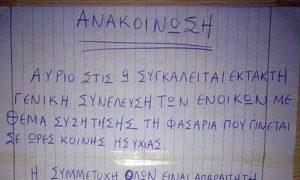 ΑΝΑΚΟΙΝΩΣΗ
ΑΥΡΙΟ ΣΤΙΣ 9 ΣΥΓΚΑΛΕΙΤΑΙ ΕΚΤΑΚΤΗ
ΓΕΝΙΚΗ ΣΥΝΕΛΕΥΣΗ ΤΩΝ ΕΝΟΙΚΩΝ ΜΕ
ΘΕΜΑ ΣΥΖΗΤΗΣΗΣ ΤΗ ΦΑΣΑΡΙΑ ΠΟΥ ΓΙΝΕΤΑΙ
ΣΕ ΩΡΕΣ ΚΟΙΝΗΣ ΗΣΥΧΙΑΣ.
Η ΣΥΜΜΕΤΟΧΗ ΟΛΩΝ ΕΙΝΑΙ ΑΠΑΡΑΙΤΗΤΗ